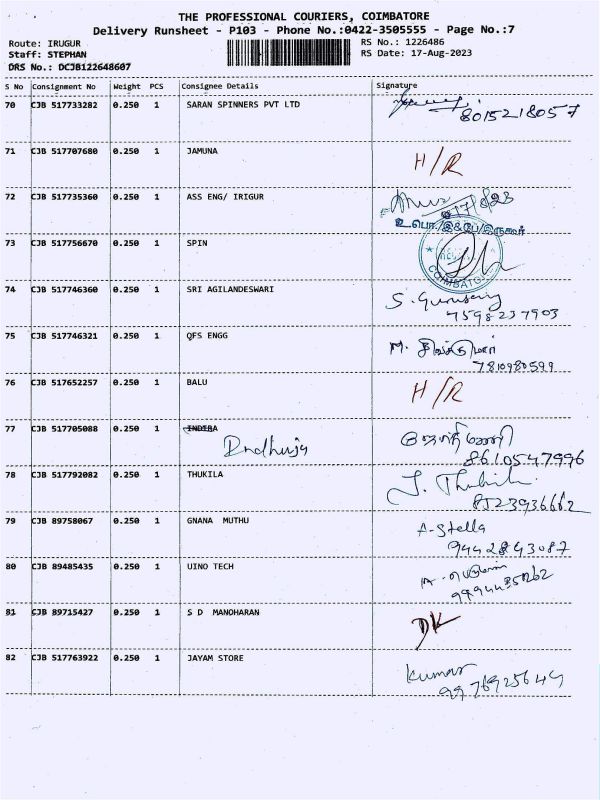 THE PROFESSIONAL COURIERS, COIMBATORE
Delivery Runsheet - P103 - Phone No.:0422-3505555 - Page No.:7
Route: IRUGUR
Staff: STEPHAN
DRS No.: DCJB122648607
RS No.: 1226486
RS Date: 17-Aug-2023
S No Consignment No Weight PCS Consignee Details Signature
70 CJB 517733282 0.250 1 SARAN SPINNERS PVT LTD
8015218057
71 CJB 517707680 0.250 1 JAMUNA H/R
72 CJB 517735360 0.250 1 ASS ENG/ IRIGUR 17/8/23
உ.பொ./இ&பே/இருகூர்
73 CJB 517756670 0.250 1 SPIN
COIMBATORE
74 CJB 517746360 0.250 1 SRI AGILANDESWARI S. Gurusamy
9598237903
75 CJB 517746321 0.250 1 QFS ENGG M.
7810980599
76 CJB 517652257 0.250 1 BALU H/R
77 CJB 517705088 0.250 1 INDIRA
Indhuja
8610547996
78 CJB 517792082 0.250 1 THUKILA J. Thukila
8523936662
79 CJB 89758067 0.250 1 GNANA MUTHU A-Stella
9442843087
80 CJB 89485435 0.250 1 UINO TECH
81 CJB 89715427 0.250 1 S D MANOHARAN DK
82 CJB 517763922 0.250 1 JAYAM STORE Kumar
9976925649